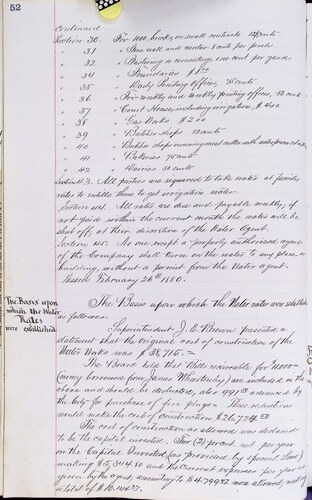 52
Continued
Section 30. For 1000 bricks, in small contracts 12½ cents
" 31 " Stone wall and mortar 5 cents per perch
" 32 " Plastering or cementing one cent per yard
" 34 " Foundaries $
" 35 " Daily Printing Offices, 75 cents
" 36 " Tri-weekly and weekly printing offices, 50 cents
" 37 " Court House, including irrigation, $4.00
" 38 " Gas Works $2.00
" 39 " Butcher shops 50 cents
" 40 " Butcher shops running meat
" 41 " Bakeries 75 cents
" 42 " Dairies 50 cents
Section 43. All parties are required to take water at family
rates to entitle them to get irrigation water.
Section 44. All rates are due and payable monthly, if
not paid within the current month the water will be
shut off, at the direction of the Water Agent.
Section 45. No one except a properly authorized agent
of the Company shall turn on the water to any place or
building, without a permit from the Water Agent.
Passed February 26th 1880.
The Basis upon
which the Water
Rates
were established
The Basis upon which the Water rates were established
as follows.
Superintendent J. E. Brown presented a
statement that the original cost of construction of the
Water Works was $38,715.=
The Board held that Bills receivable for $11000=
(money borrowed from James) are included in the
above and should be deducted, also 991 advanced by
the City for purchase of fire plugs. These reductions
would make the cost of construction $26,724
The cost of construction as allowed was declared
to be the capital invested. Two (2) per cent. per year
on the Capital Invested (as provided by special law)
making $5,344.80 and the current expenses per year as
given by the agent, amounting to $4,799 were allowed, making
a total of $10,144